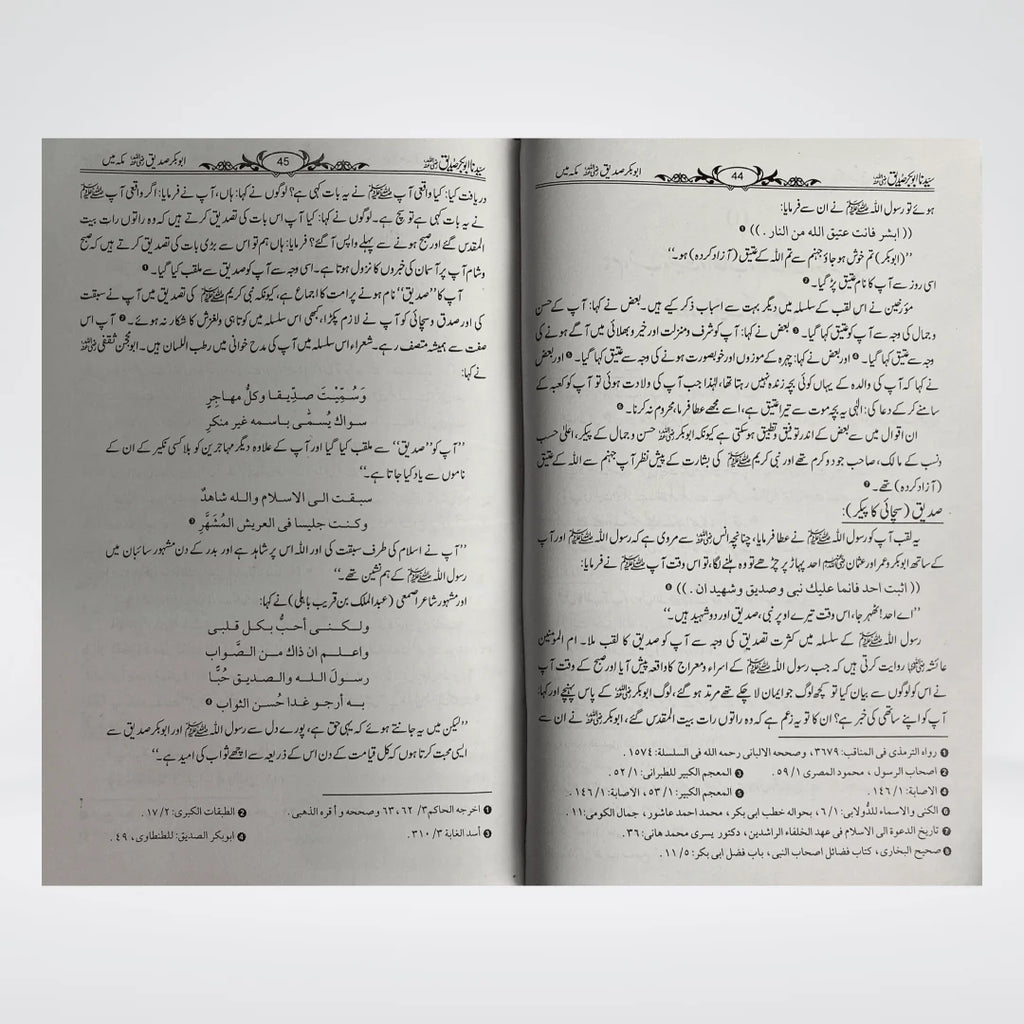 سیدنا ابوبکر صدیق رضی اللہ عنہ 44 ابوبکر صدیق رضی اللہ عنہ مکہ میں
ہوئے تو رسول اللہ ﷺ نے ان سے فرمایا:
(( ابشر فانت عتيق الله من النار . )) ❶
’’(ابوبکر) تم خوش ہو جاؤ جہنم سے تم اللہ کے عتیق (آزاد کردہ) ہو۔‘‘
اسی روز سے آپ کا نام عتیق پڑ گیا۔ ❷
مؤرخین نے اس لقب کے سلسلہ میں دیگر بہت سے اسباب ذکر کیے ہیں۔ بعض نے کہا: آپ کے حسن
و جمال کی وجہ سے آپ کو عتیق کہا گیا۔ ❸ بعض نے کہا: آپ کو شرف و منزلت اور خیر و بھلائی میں آگے ہونے کی
وجہ سے عتیق کہا گیا۔ ❹ اور بعض نے کہا: چہرہ کے موزوں اور خوبصورت ہونے کی وجہ سے عتیق کہا گیا۔ ❺ اور بعض
نے کہا کہ آپ کی والدہ کے یہاں کوئی بچہ زندہ نہیں رہتا تھا، لہٰذا جب آپ کی ولادت ہوئی تو آپ کو کعبہ کے
سامنے کر کے دعا کی: الٰہی یہ بچہ موت سے تیرا عتیق ہے، اسے مجھے عطا فرما، محروم نہ کرنا۔ ❻
ان اقوال میں سے بعض کے اندر توفیق و تطبیق ہو سکتی ہے کیونکہ ابوبکر رضی اللہ عنہ حسن و جمال کے پیکر، اعلیٰ حسب
ونسب کے مالک، صاحب جود و کرم تھے اور نبی کریم ﷺ کی بشارت کے پیش نظر آپ جہنم سے اللہ کے عتیق
(آزاد کردہ) تھے۔ ❼
صدیق (سچائی کا پیکر):
یہ لقب آپ کو رسول اللہ ﷺ نے عطا فرمایا، چنانچہ انس رضی اللہ عنہ سے مروی ہے کہ رسول اللہ ﷺ اور آپ
کے ساتھ ابوبکر وعمر اور عثمان رضی اللہ عنہم احد پہاڑ پر چڑھے تو وہ ہلنے لگا، تو اس وقت آپ ﷺ نے فرمایا:
(( اثبت احد فانما عليك نبی وصديق وشهيد ان . )) ❽
’’اے احد! ٹھہر جا، اس وقت تیرے اوپر نبی، صدیق اور دو شہید ہیں۔‘‘
رسول اللہ ﷺ کے سلسلہ میں کثرت تصدیق کی وجہ سے آپ کو صدیق کا لقب ملا۔ ام المومنین
عائشہ رضی اللہ عنہا روایت کرتی ہیں کہ جب رسول اللہ ﷺ کے اسراء ومعراج کا واقعہ پیش آیا اور صبح کے وقت آپ
نے اس کو لوگوں سے بیان کیا تو کچھ لوگ جو ایمان لا چکے تھے مرتد ہو گئے، لوگ ابوبکر رضی اللہ عنہ کے پاس پہنچے اور کہا:
آپ کو اپنے ساتھی کی خبر ہے؟ ان کا تو یہ زعم ہے کہ وہ راتوں رات بیت المقدس گئے، ابوبکر رضی اللہ عنہ نے ان سے
❶ رواه الترمذی فی المناقب: ٣٦٧٩، وصححه الالبانی رحمه الله فی السلسلة: ١٥٧٤ .
❷ اصحاب الرسول ، محمود المصری ١/ ٥٩. ❸ المعجم الكبير للطبرانی: ١/ ٥٢ .
❹ الاصابة: ١/ ١٤٦ . ❺ المعجم الكبير: ١/ ٥٣، الاصابة: ١/ ١٤٦ .
❻ الكنى والاسماء للدُّولابی: ١/ ٦، بحواله خطب ابی بكر، محمد احمد عاشور، جمال الكومی: ١١ .
❼ تاريخ الدعوة الى الاسلام فی عهد الخلفاء الراشدين، دكتور يسرى محمد هانی: ٣٦ .
❽ صحيح البخاری، كتاب فضائل اصحاب النبی، باب فضل ابی بكر: ٥/ ١١ .
سیدنا ابوبکر صدیق رضی اللہ عنہ 45 ابوبکر صدیق رضی اللہ عنہ مکہ میں
دریافت کیا: کیا واقعی آپ ﷺ نے یہ بات کہی ہے؟ لوگوں نے کہا: ہاں، آپ نے فرمایا: اگر واقعی آپ ﷺ
نے یہ بات کہی ہے تو سچ ہے۔ لوگوں نے کہا: کیا آپ اس بات کی تصدیق کرتے ہیں کہ وہ راتوں رات بیت
المقدس گئے اور صبح ہونے سے پہلے واپس آ گئے؟ فرمایا: ہاں ہم تو اس سے بڑی بات کی تصدیق کرتے ہیں کہ صبح
وشام آپ پر آسمان کی خبروں کا نزول ہوتا ہے۔ اسی وجہ سے آپ کو صدیق سے ملقب کیا گیا۔ ❶
آپ کا ’’صدیق‘‘ نام ہونے پر امت کا اجماع ہے، کیونکہ نبی کریم ﷺ کی تصدیق میں آپ نے سبقت
کی اور صدق وسچائی کو آپ نے لازم پکڑا، کبھی اس سلسلہ میں کوتاہی ولغزش کا شکار نہ ہوئے۔ ❷ آپ اس
صفت سے ہمیشہ متصف رہے۔ شعراء اس سلسلہ میں آپ کی مدح خوانی میں رطب اللسان ہیں۔ ابو محجن ثقفی رضی اللہ عنہ
نے کہا:
وَسُمِّيْتَ صدِّيقا وكلُّ مهاجرٍ
سواك يُسمّٰى باسمه غير منكرٍ
’’آپ کو ’’صدیق‘‘ سے ملقب کیا گیا اور آپ کے علاوہ دیگر مہاجرین کو بلا کسی نکیر کے ان کے
ناموں سے یاد کیا جاتا ہے۔‘‘
سبقت الى الاسلام والله شاهدٌ
وكنت جليسا فى العريش المُشَهَّرِ ❸
’’آپ نے اسلام کی طرف سبقت کی اور اللہ اس پر شاہد ہے اور بدر کے دن مشہور سائبان میں
رسول اللہ ﷺ کے ہم نشین تھے۔‘‘
اور مشہور شاعر اصمعی (عبدالملک بن قریب باہلی) نے کہا:
ولـكـنـى أحبُّ بـكـل قلبى
واعـلـم ان ذاك مـن الصَّواب
رسولَ الـلـه والـصـديـق حُبًّا
بـه أرجـو غـدا حُسن الثواب ❹
’’لیکن میں یہ جانتے ہوئے کہ یہی حق ہے، پورے دل سے رسول اللہ ﷺ اور ابوبکر صدیق سے
ایسی محبت کرتا ہوں کہ کل قیامت کے دن اس کے ذریعہ سے اچھے ثواب کی امید ہے۔‘‘
❶ اخرجه الحاكم ٣/ ٦٢، ٦٣ وصححه و أقره الذهبی . ❷ الطبقات الكبرى: ٢/ ١٧ .
❸ أسد الغابة ٣/ ٣١٠ . ❹ ابوبكر الصديق: للطنطاوى، ٤٩ .